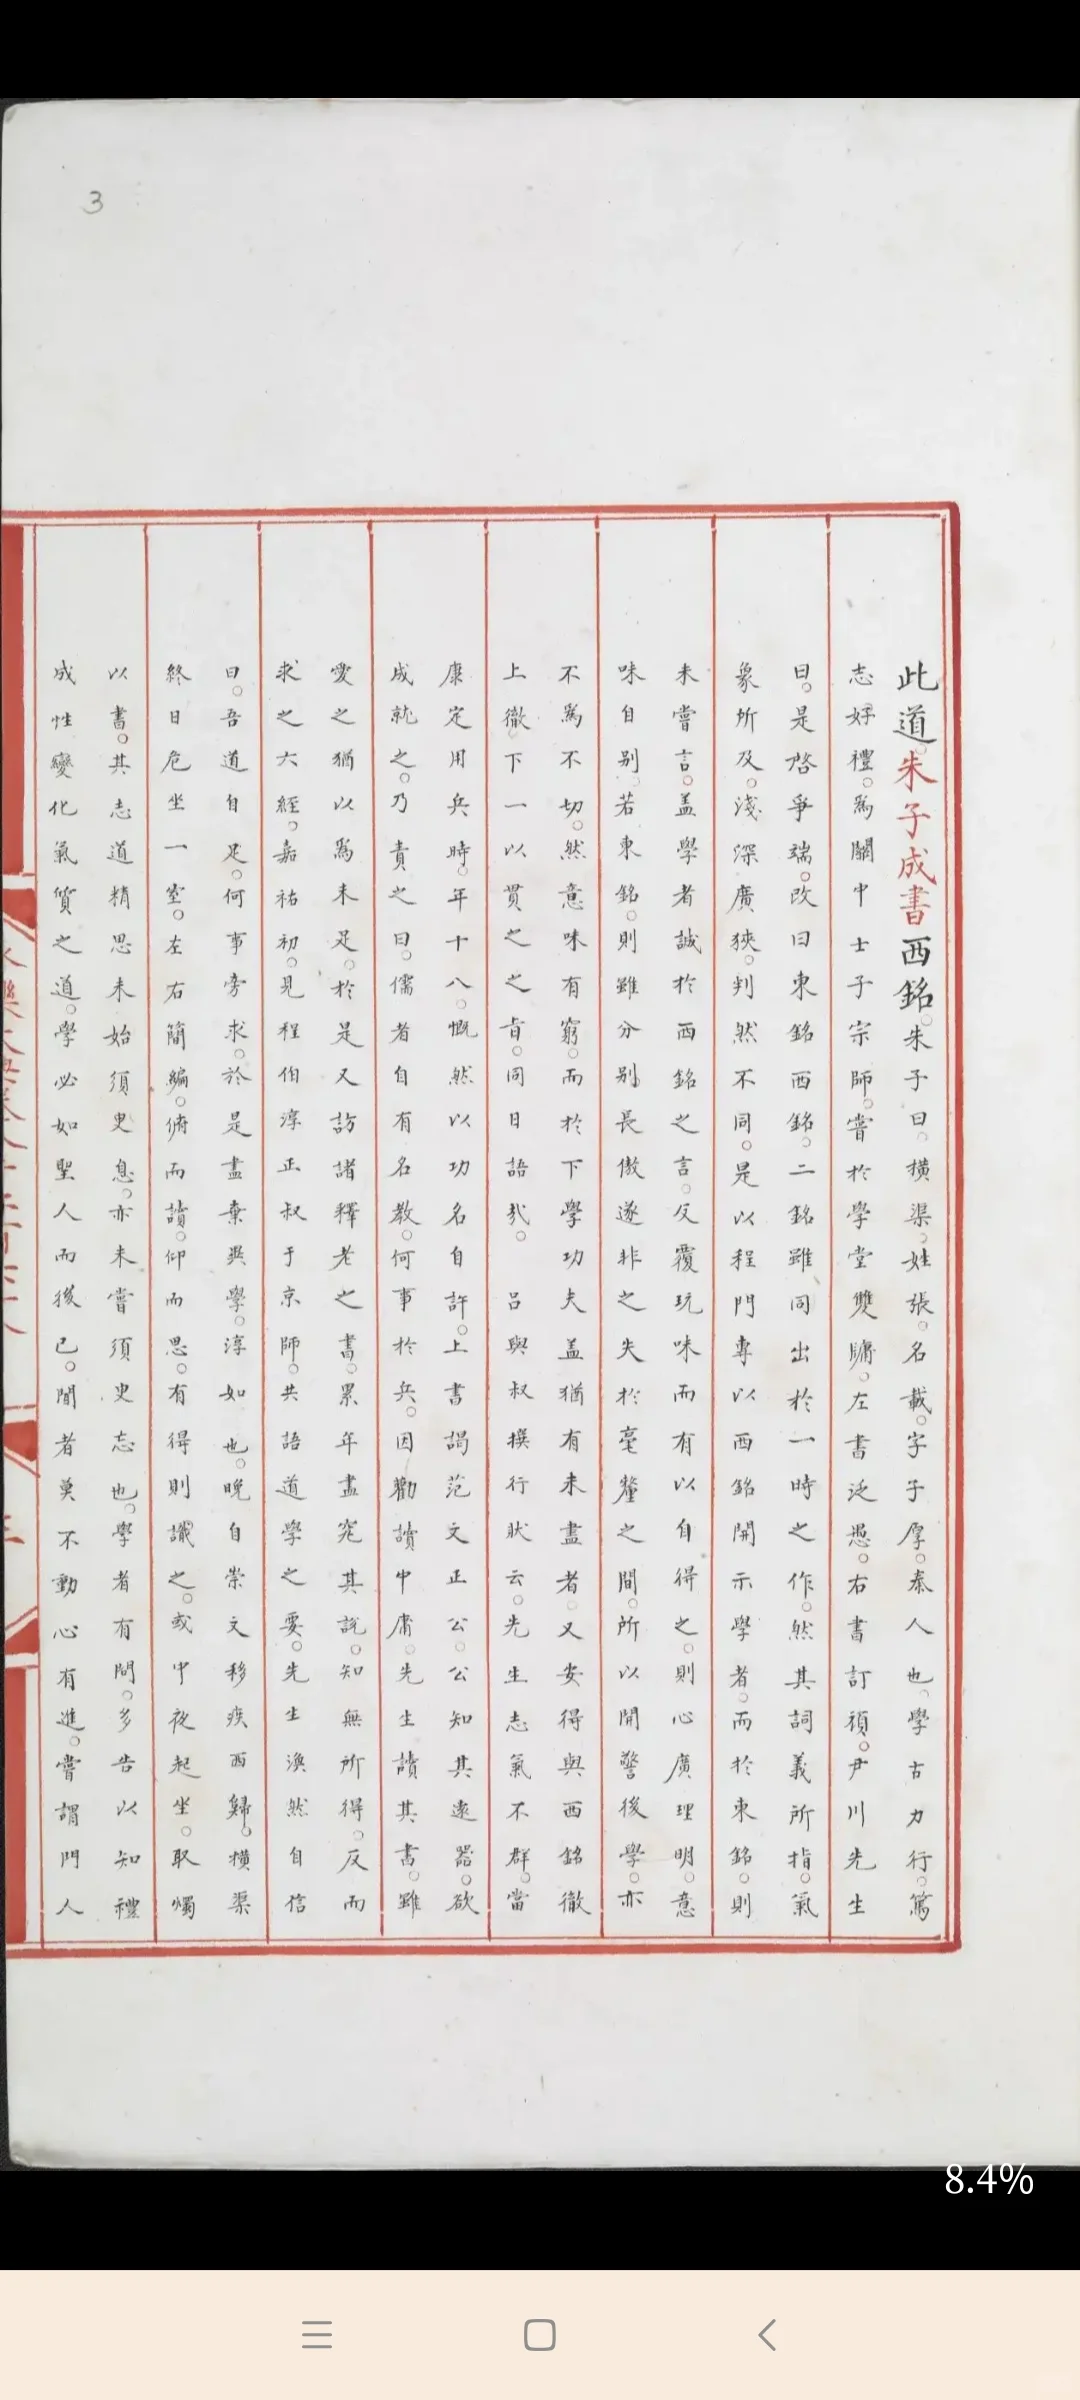 3
此道朱子成書西銘朱子曰。橫渠。姓張。名載。字子厚。秦人也。學古力行。篤
志好禮。爲關中士子宗師。嘗於學堂雙牖。左書泛愚。右書訂頑。尹川先生
曰。是啓爭端。改曰東銘西銘。二銘雖同出於一時之作。然其詞義所指。氣
象所及。淺深廣狹。判然不同。是以程門專以西銘開示學者。而於東銘。則
未嘗言。盖學者誠於西銘之言。反覆玩味而有以自得之。則心廣理明。意
味自别。若東銘。則雖分别長傲遂非之失於毫釐之間。所以開警後學。亦
不爲不切。然意味有窮。而於下學功夫盖猶有未盡者。又安得與西銘徹
上徹下一以貫之之旨。同日語哉。呂與叔撰行狀云。先生志氣不群。當
康定用兵時。年十八。慨然以功名自許。上書謁范文正公。公知其遠器。欲
成就之。乃責之曰。儒者自有名教。何事於兵。因勸讀中庸。先生讀其書。雖
愛之猶以爲未足。於是又訪諸釋老之書。累年盡究其説。知無所得。反而
求之六經。嘉祐初。見程伯淳正叔于京師。共語道學之要。先生渙然自信
曰。吾道自足。何事旁求。於是盡棄異學。淳如也。晚自崇文移疾西歸。橫渠
終日危坐一室。左右簡編。俯而讀。仰而思。有得則識之。或中夜起坐。取燭
以書。其志道精思未始須臾息。亦未嘗須臾忘也。學者有問。多告以知禮
成性變化氣質之道。學必如聖人而後已。聞者莫不動心有進。嘗謂門人
8.4%